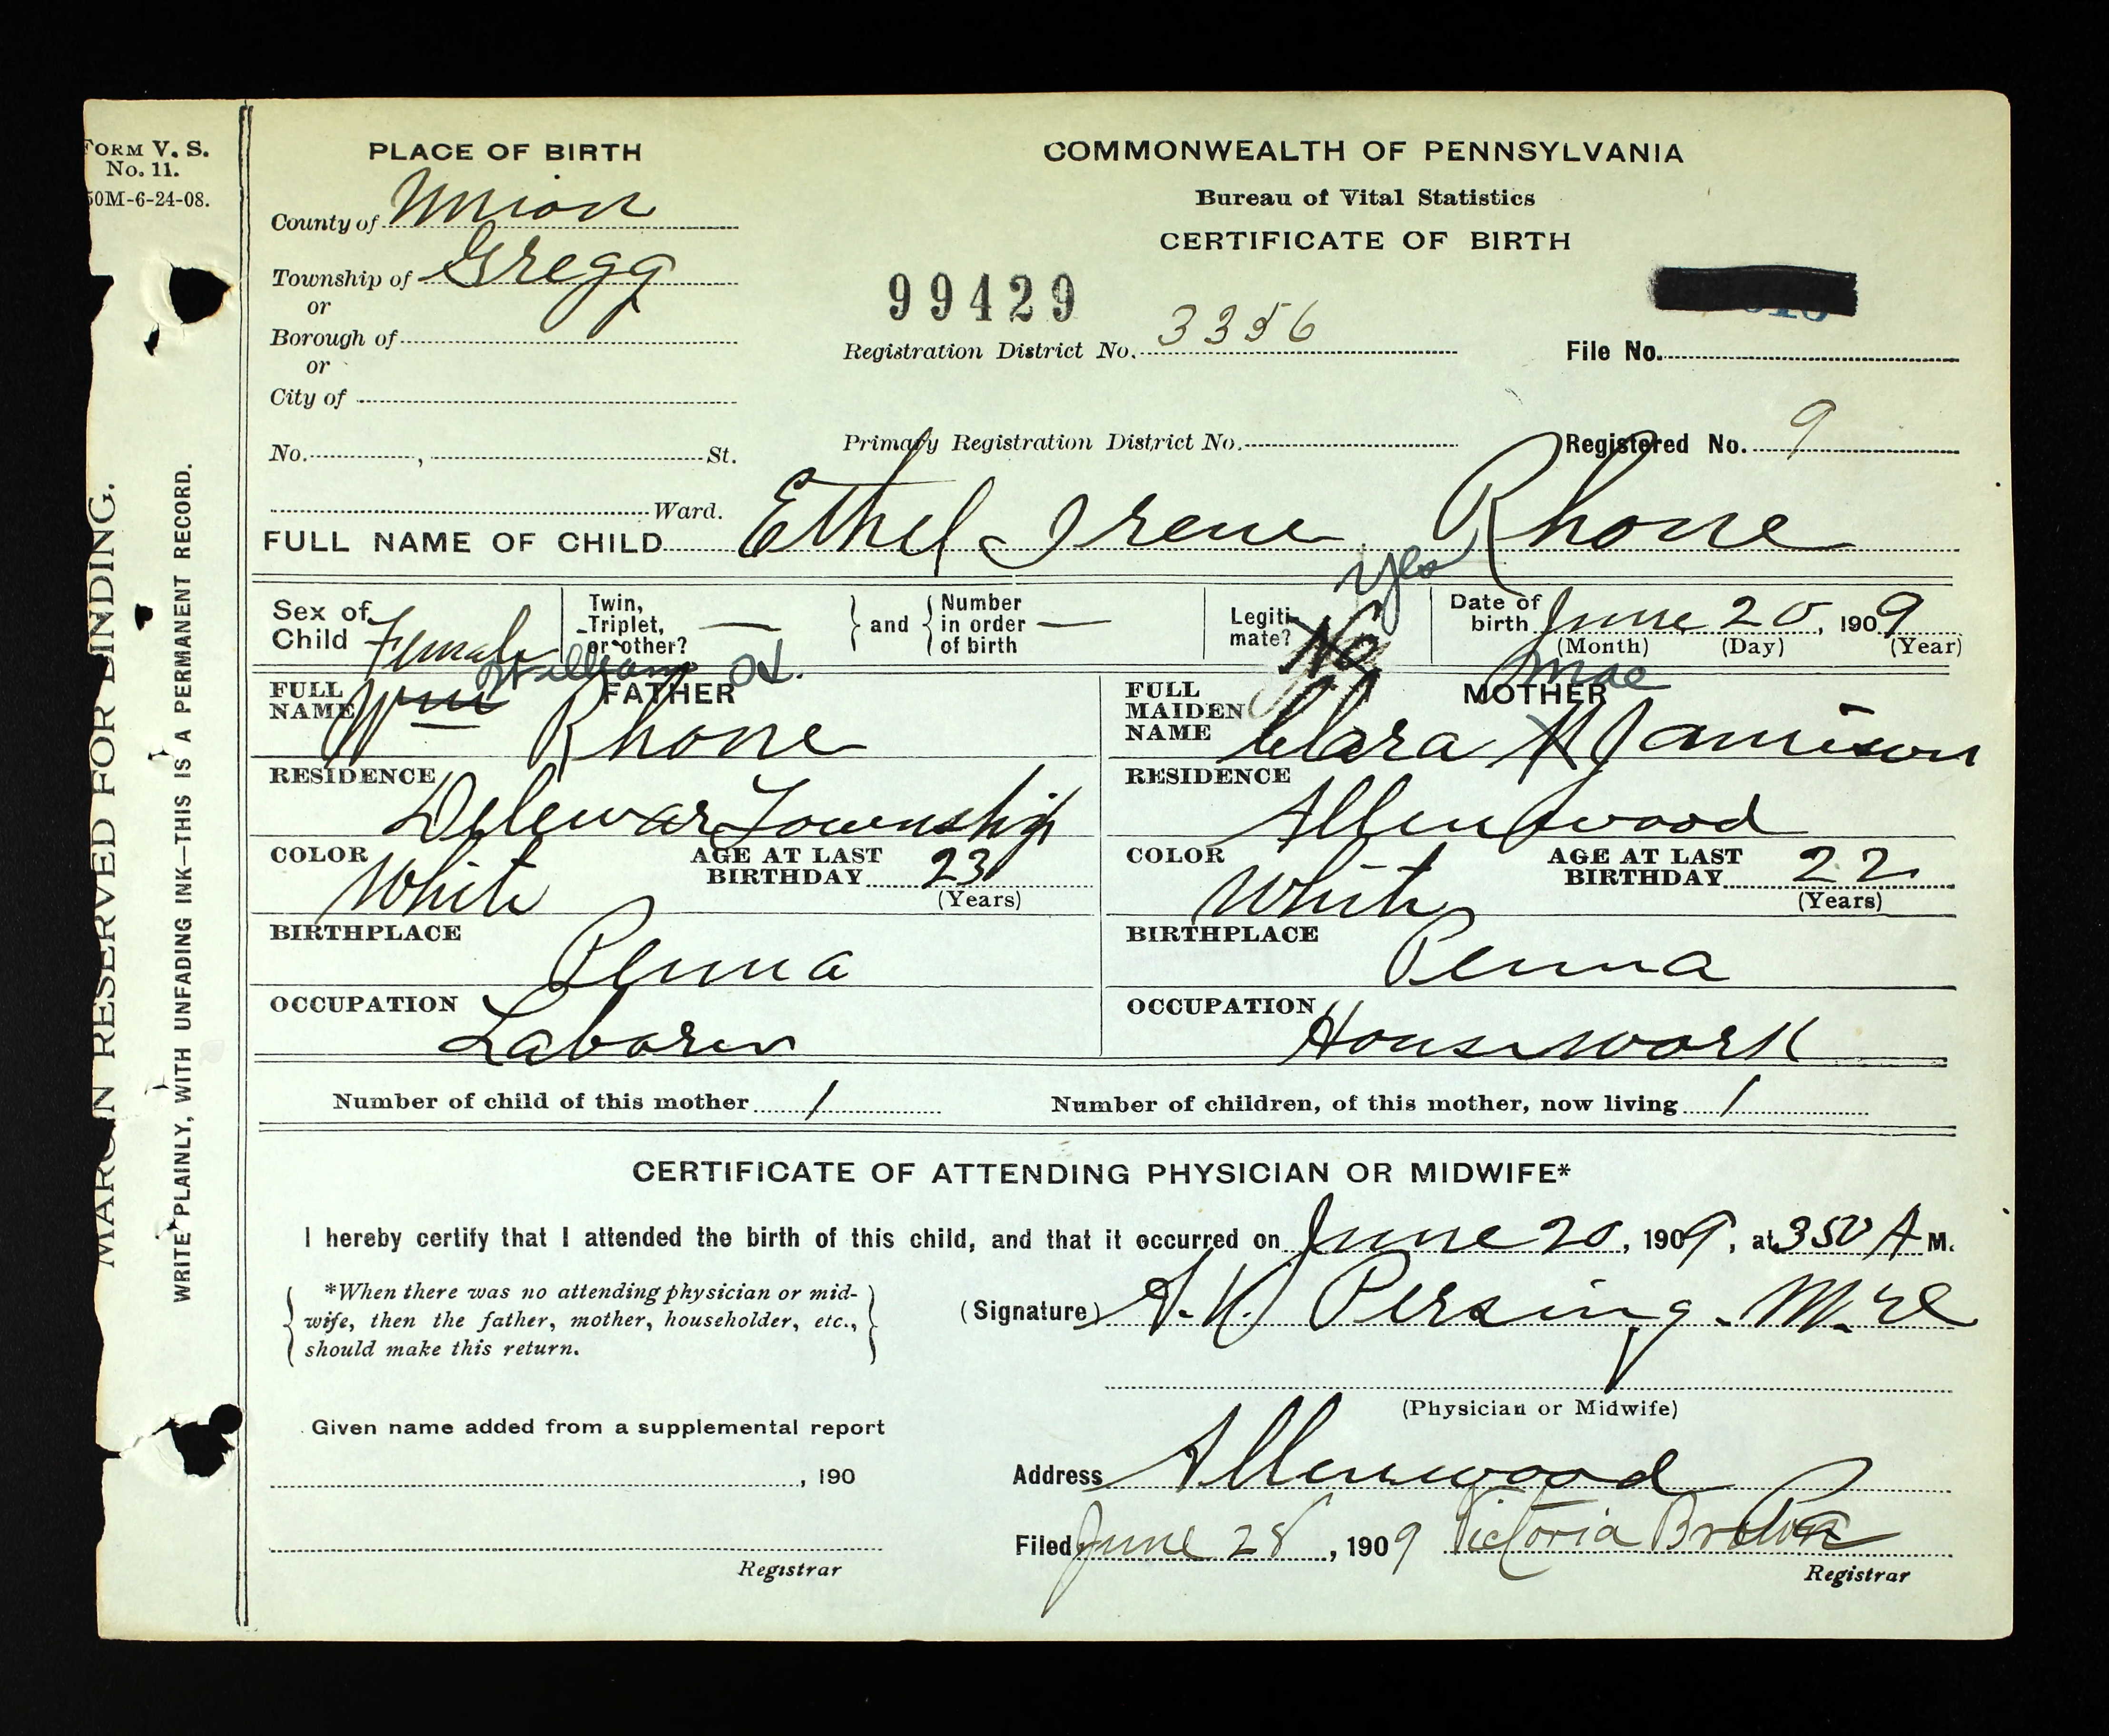 FORM V. S.
No. 11.
50M-6-24-08.
MARGIN RESERVED FOR BINDING.
WRITE PLAINLY, WITH UNFADING INK—THIS IS A PERMANENT RECORD.
PLACE OF BIRTH
County of Union
Township of Gregg
or
Borough of
or
City of
No. , St.
Ward.
COMMONWEALTH OF PENNSYLVANIA
Bureau of Vital Statistics
CERTIFICATE OF BIRTH
99429
Registration District No. 3356
File No.
Primary Registration District No.
Registered No. 9
FULL NAME OF CHILD Ethel Irene Rhone
Sex of Child Female
Twin, Triplet, or other? —
and
Number in order of birth —
Legitimate? No yes
Date of birth June 20, 1909
(Month) (Day) (Year)
FATHER
FULL NAME Wm William Rhone
RESIDENCE
Delewar Township
COLOR White
AGE AT LAST BIRTHDAY 23
(Years)
BIRTHPLACE
Penna
OCCUPATION
Laborer
MOTHER
FULL MAIDEN NAME Clara Mae Jamison
RESIDENCE
Allenwood
COLOR White
AGE AT LAST BIRTHDAY 22
(Years)
BIRTHPLACE
Penna
OCCUPATION
Housework
Number of child of this mother 1
Number of children, of this mother, now living 1
CERTIFICATE OF ATTENDING PHYSICIAN OR MIDWIFE*
I hereby certify that I attended the birth of this child, and that it occurred on June 20, 1909, at 350 A M.
*When there was no attending physician or mid-
wife, then the father, mother, householder, etc.,
should make this return.
(Signature) Persing
(Physician or Midwife)
Given name added from a supplemental report
, 190
Registrar
Address Allenwood Pa
Filed June 28, 1909 Victoria Brown
Registrar